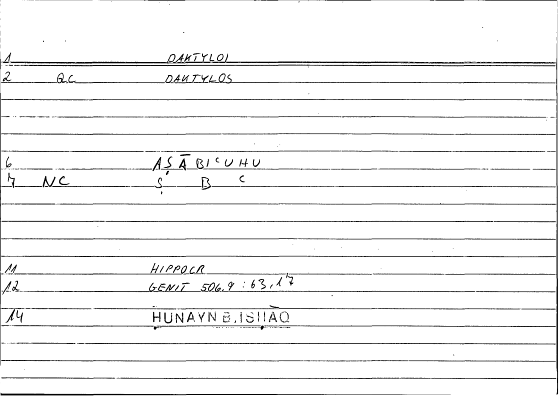 1 DAKTYLOI
2 QC DAKTYLOS
6 AṢĀBIʿUHU
7 NC Ṣ B ʿ
11 HIPPOCR
12 GENIT 506,9 : 63,17
14 ḤUNAYN B. ISḤĀQ